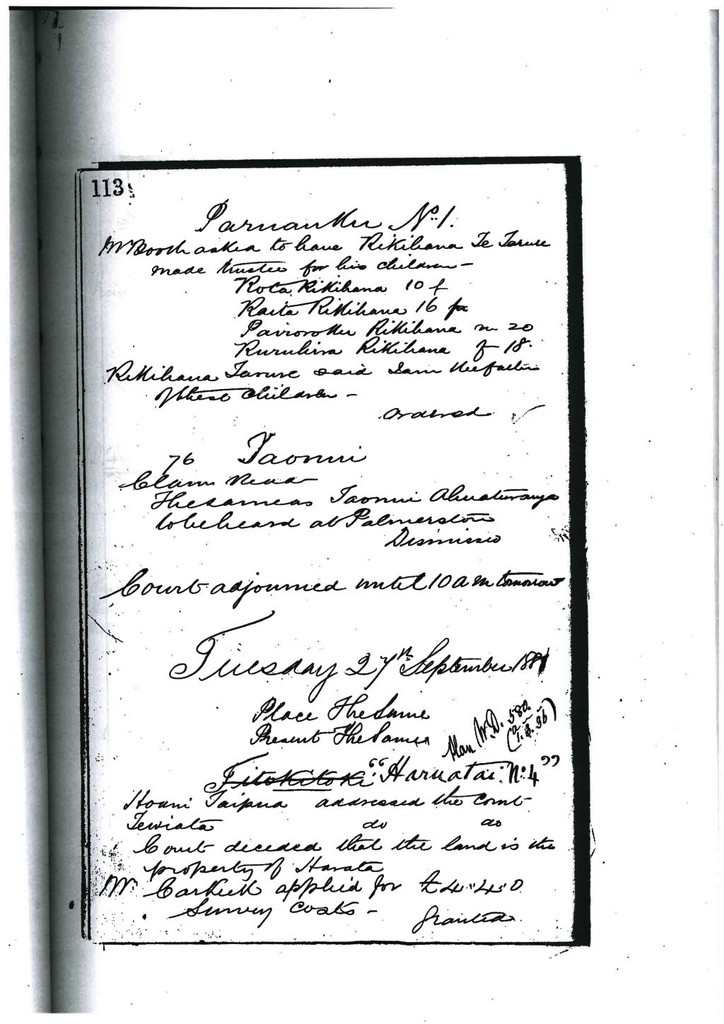 113
Paruauku No. 1.
Mr Booth asked to have Rikihana Te Tarure
made trustee for his children —
Rota Rikihana 10 f
Raita Rikihana 16 f
Rikihana m 20
Ruruhira Rikihana f 18.
Rikihana Tarure said I am the father
of these children —
ordered
76 Taonui
Claim read
The same as Taonui Ahuaturanga
to be heard at Palmerston
Dismissed
Court adjourned until 10 am tomorrow
Tuesday 27th September 1881
Place The Same
Present The Same
Plan W.D. 580
Titokitoki "Haruatai: No: 4"
Hoani Taipua addressed the Court
Tewiata do do
Court decided that the land is the
property of Harata
Mr Carkeek applied for £4"4"0
Survey costs —
Granted